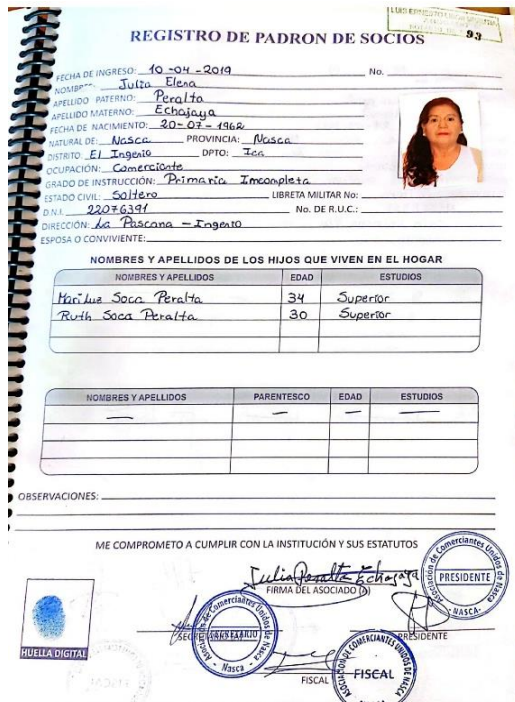 93
REGISTRO DE PADRON DE SOCIOS
FECHA DE INGRESO: 10-04-2019 No.
Julia Elena
APELLIDO PATERNO: Peralta
APELLIDO MATERNO: Echajaya
FECHA DE NACIMIENTO: 20-07-1962
NATURAL DE: Nasca PROVINCIA: Nasca
DISTRITO: El Ingenio DPTO: Ica
OCUPACIÓN: Comerciante
GRADO DE INSTRUCCIÓN: Primaria Imcompleta
ESTADO CIVIL: Soltero LIBRETA MILITAR No:
D.N.I. 22076391 No. DE R.U.C.:
DIRECCIÓN: La Pascana - Ingenio
ESPOSA O CONVIVIENTE:
NOMBRES Y APELLIDOS DE LOS HIJOS QUE VIVEN EN EL HOGAR
NOMBRES Y APELLIDOS EDAD ESTUDIOS
Mari Luz Soca Peralta 34 Superior
Ruth Soca Peralta 30 Superior
NOMBRES Y APELLIDOS PARENTESCO EDAD ESTUDIOS
— — — —
OBSERVACIONES:
ME COMPROMETO A CUMPLIR CON LA INSTITUCIÓN Y SUS ESTATUTOS
Julia Peralta Echajaya
FIRMA DEL ASOCIADO (a)
Asociación de Comerciantes Unidos de Nasca
PRESIDENTE
- NASCA -
Asociación de Comerciantes Unidos de Nasca
- Nasca -
PRESIDENTE
HUELLA DIGITAL
FISCAL
ASOCIACIÓN DE COMERCIANTES UNIDOS DE NASCA
FISCAL